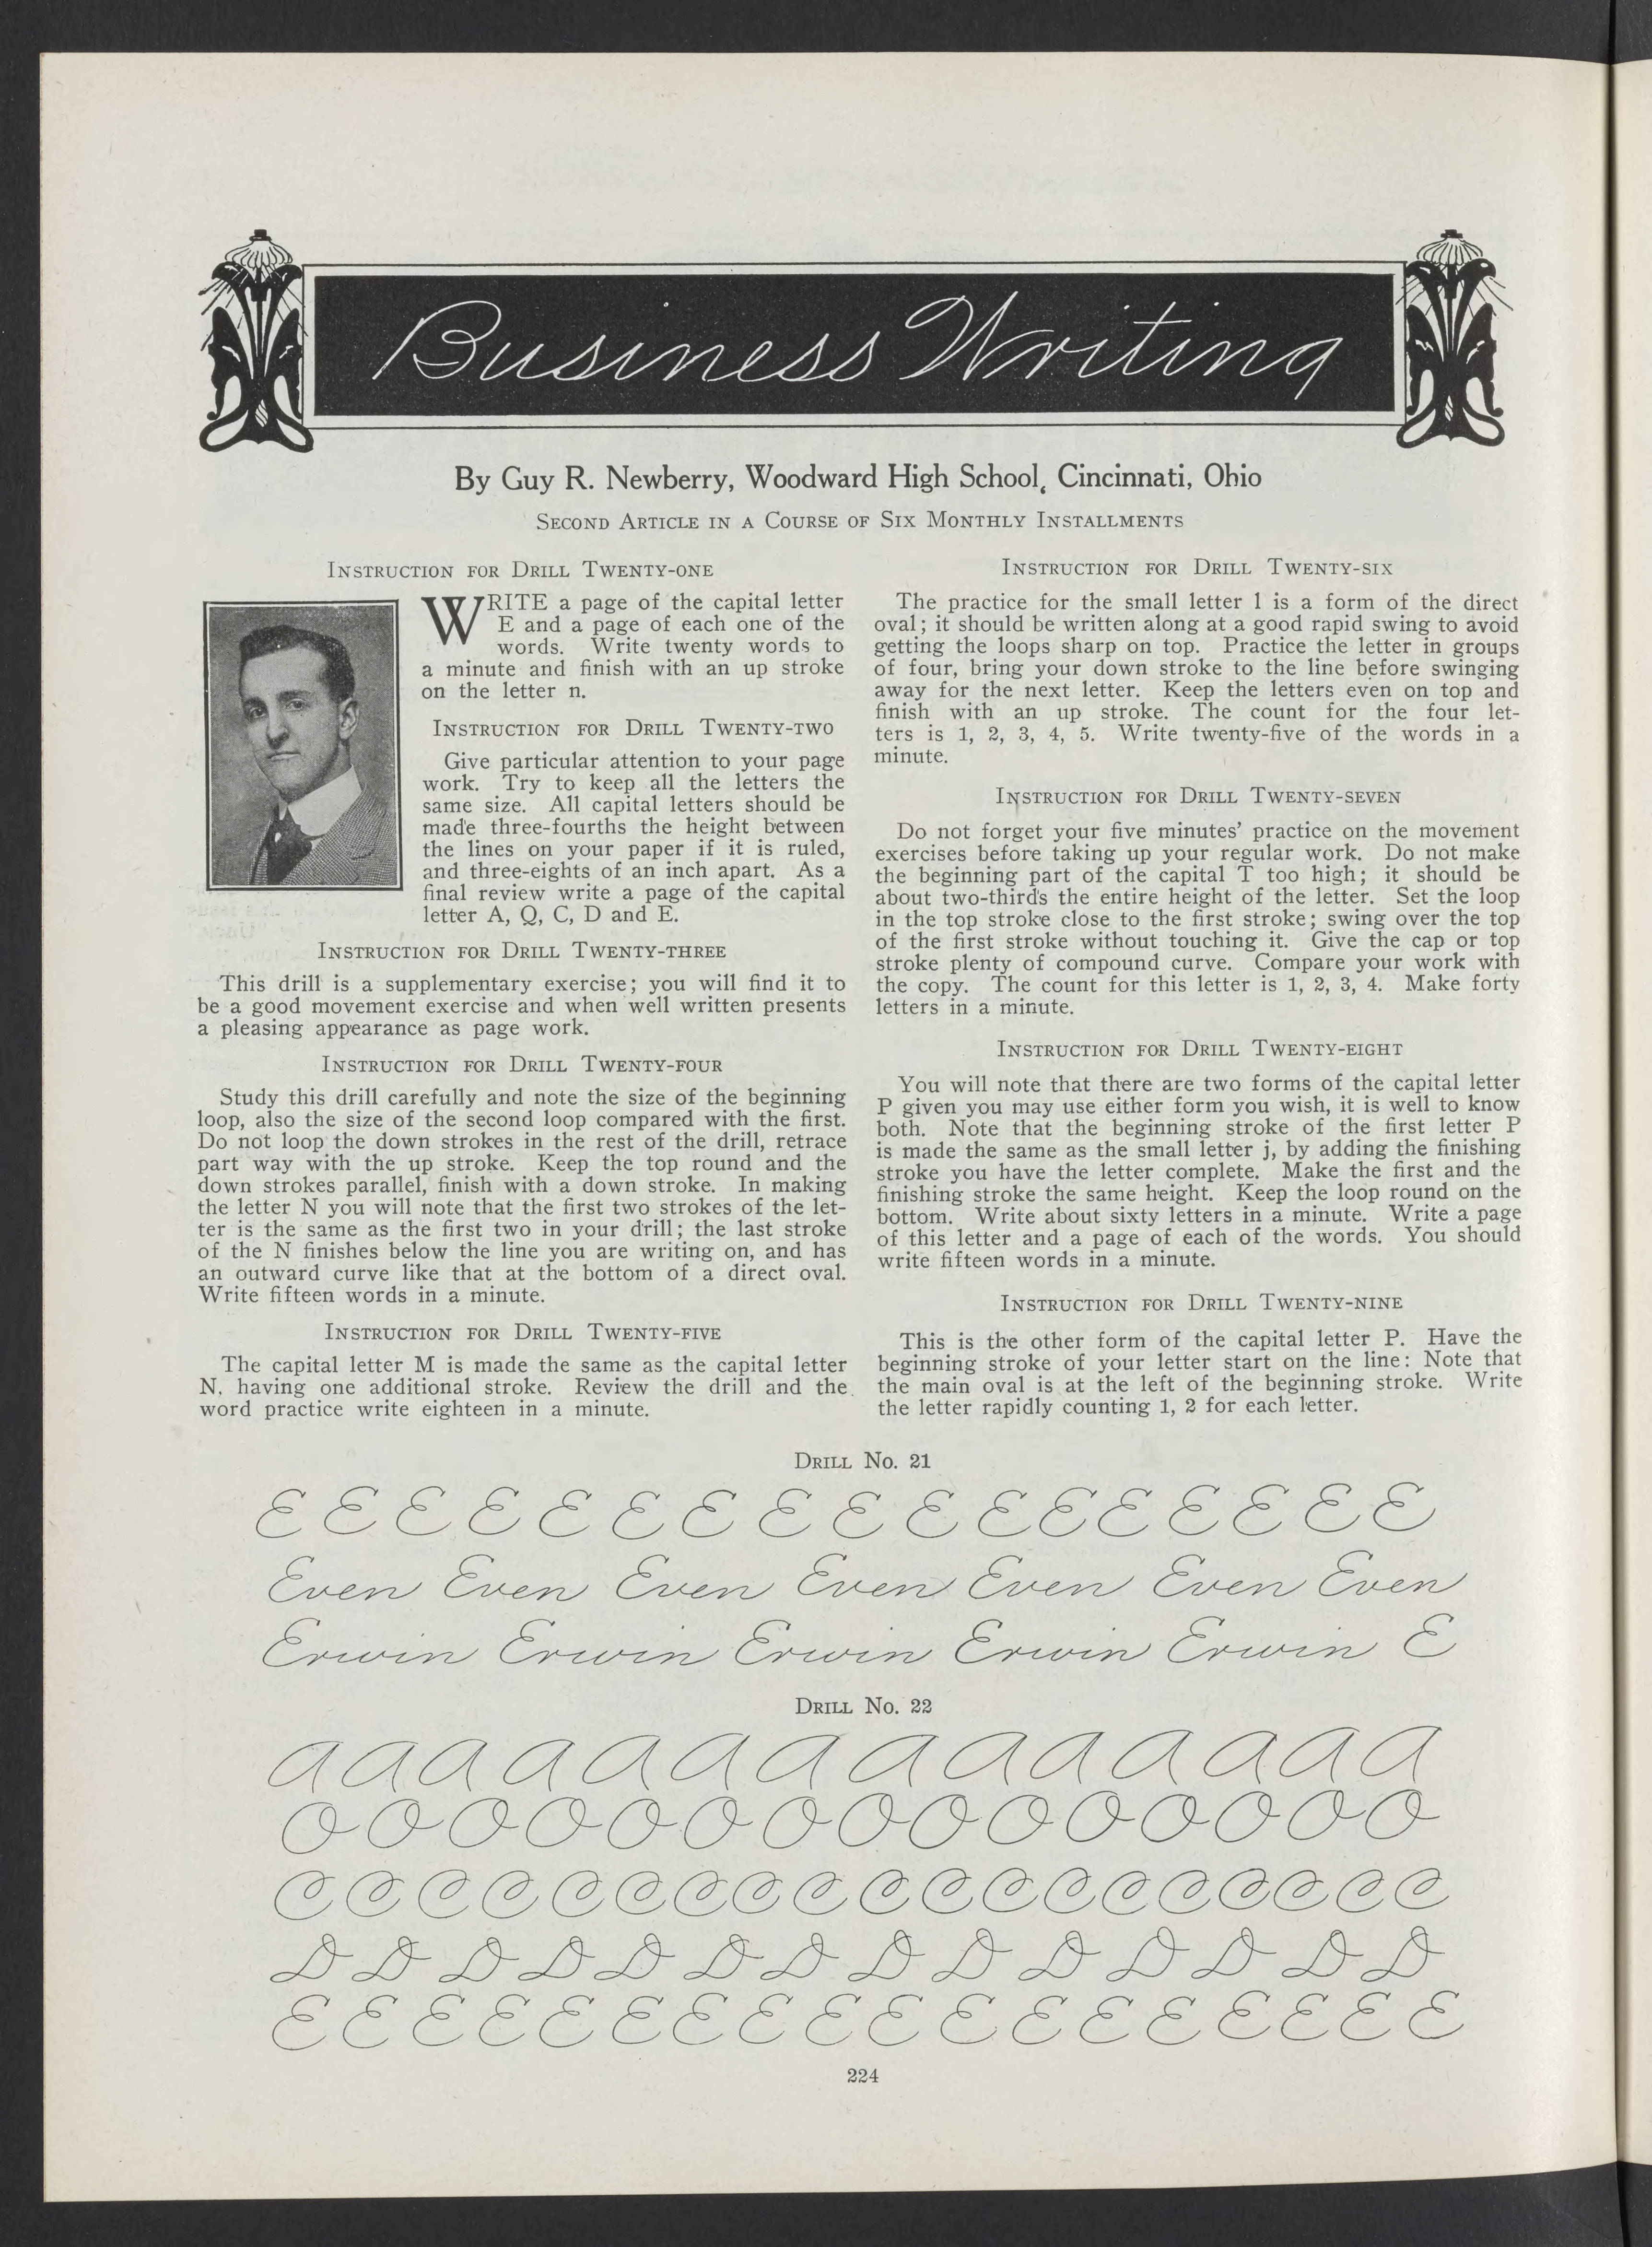 Business Writing
By Guy R. Newberry, Woodward High School, Cincinnati, Ohio
Second Article in a Course of Six Monthly Installments
Instruction for Drill Twenty-one
WRITE a page of the capital letter
E and a page of each one of the
words. Write twenty words to
a minute and finish with an up stroke
on the letter n.
Instruction for Drill Twenty-two
Give particular attention to your page
work. Try to keep all the letters the
same size. All capital letters should be
made three-fourths the height between
the lines on your paper if it is ruled,
and three-eights of an inch apart. As a
final review write a page of the capital
letter A, Q, C, D and E.
Instruction for Drill Twenty-three
This drill is a supplementary exercise; you will find it to
be a good movement exercise and when well written presents
a pleasing appearance as page work.
Instruction for Drill Twenty-four
Study this drill carefully and note the size of the beginning
loop, also the size of the second loop compared with the first.
Do not loop the down strokes in the rest of the drill, retrace
part way with the up stroke. Keep the top round and the
down strokes parallel, finish with a down stroke. In making
the letter N you will note that the first two strokes of the let-
ter is the same as the first two in your drill; the last stroke
of the N finishes below the line you are writing on, and has
an outward curve like that at the bottom of a direct oval.
Write fifteen words in a minute.
Instruction for Drill Twenty-five
The capital letter M is made the same as the capital letter
N, having one additional stroke. Review the drill and the
word practice write eighteen in a minute.
Instruction for Drill Twenty-six
The practice for the small letter l is a form of the direct
oval; it should be written along at a good rapid swing to avoid
getting the loops sharp on top. Practice the letter in groups
of four, bring your down stroke to the line before swinging
away for the next letter. Keep the letters even on top and
finish with an up stroke. The count for the four let-
ters is 1, 2, 3, 4, 5. Write twenty-five of the words in a
minute.
Instruction for Drill Twenty-seven
Do not forget your five minutes' practice on the movement
exercises before taking up your regular work. Do not make
the beginning part of the capital T too high; it should be
about two-thirds the entire height of the letter. Set the loop
in the top stroke close to the first stroke; swing over the top
of the first stroke without touching it. Give the cap or top
stroke plenty of compound curve. Compare your work with
the copy. The count for this letter is 1, 2, 3, 4. Make forty
letters in a minute.
Instruction for Drill Twenty-eight
You will note that there are two forms of the capital letter
P given you may use either form you wish, it is well to know
both. Note that the beginning stroke of the first letter P
is made the same as the small letter j, by adding the finishing
stroke you have the letter complete. Make the first and the
finishing stroke the same height. Keep the loop round on the
bottom. Write about sixty letters in a minute. Write a page
of this letter and a page of each of the words. You should
write fifteen words in a minute.
Instruction for Drill Twenty-nine
This is the other form of the capital letter P. Have the
beginning stroke of your letter start on the line: Note that
the main oval is at the left of the beginning stroke. Write
the letter rapidly counting 1, 2 for each letter.
Drill No. 21
E E E E E E E E E E E E E E E E E
Even Even Even Even Even Even Even
Erwin Erwin Erwin Erwin Erwin E
Drill No. 22
A A A A A A A A A A A A A A
O O O O O O O O O O O O O O O
C C C C C C C C C C C C C C C C C C C
D D D D D D D D D D D D D D
E E E E E E E E E E E E E E E E E E
224